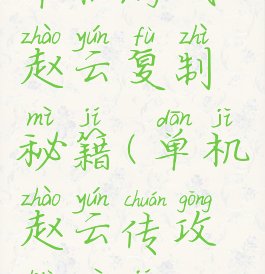 zhào yún fù zhì
赵云复制
mì jí dān jī
秘籍(单机
zhào yún chuán gōng
赵云传攻